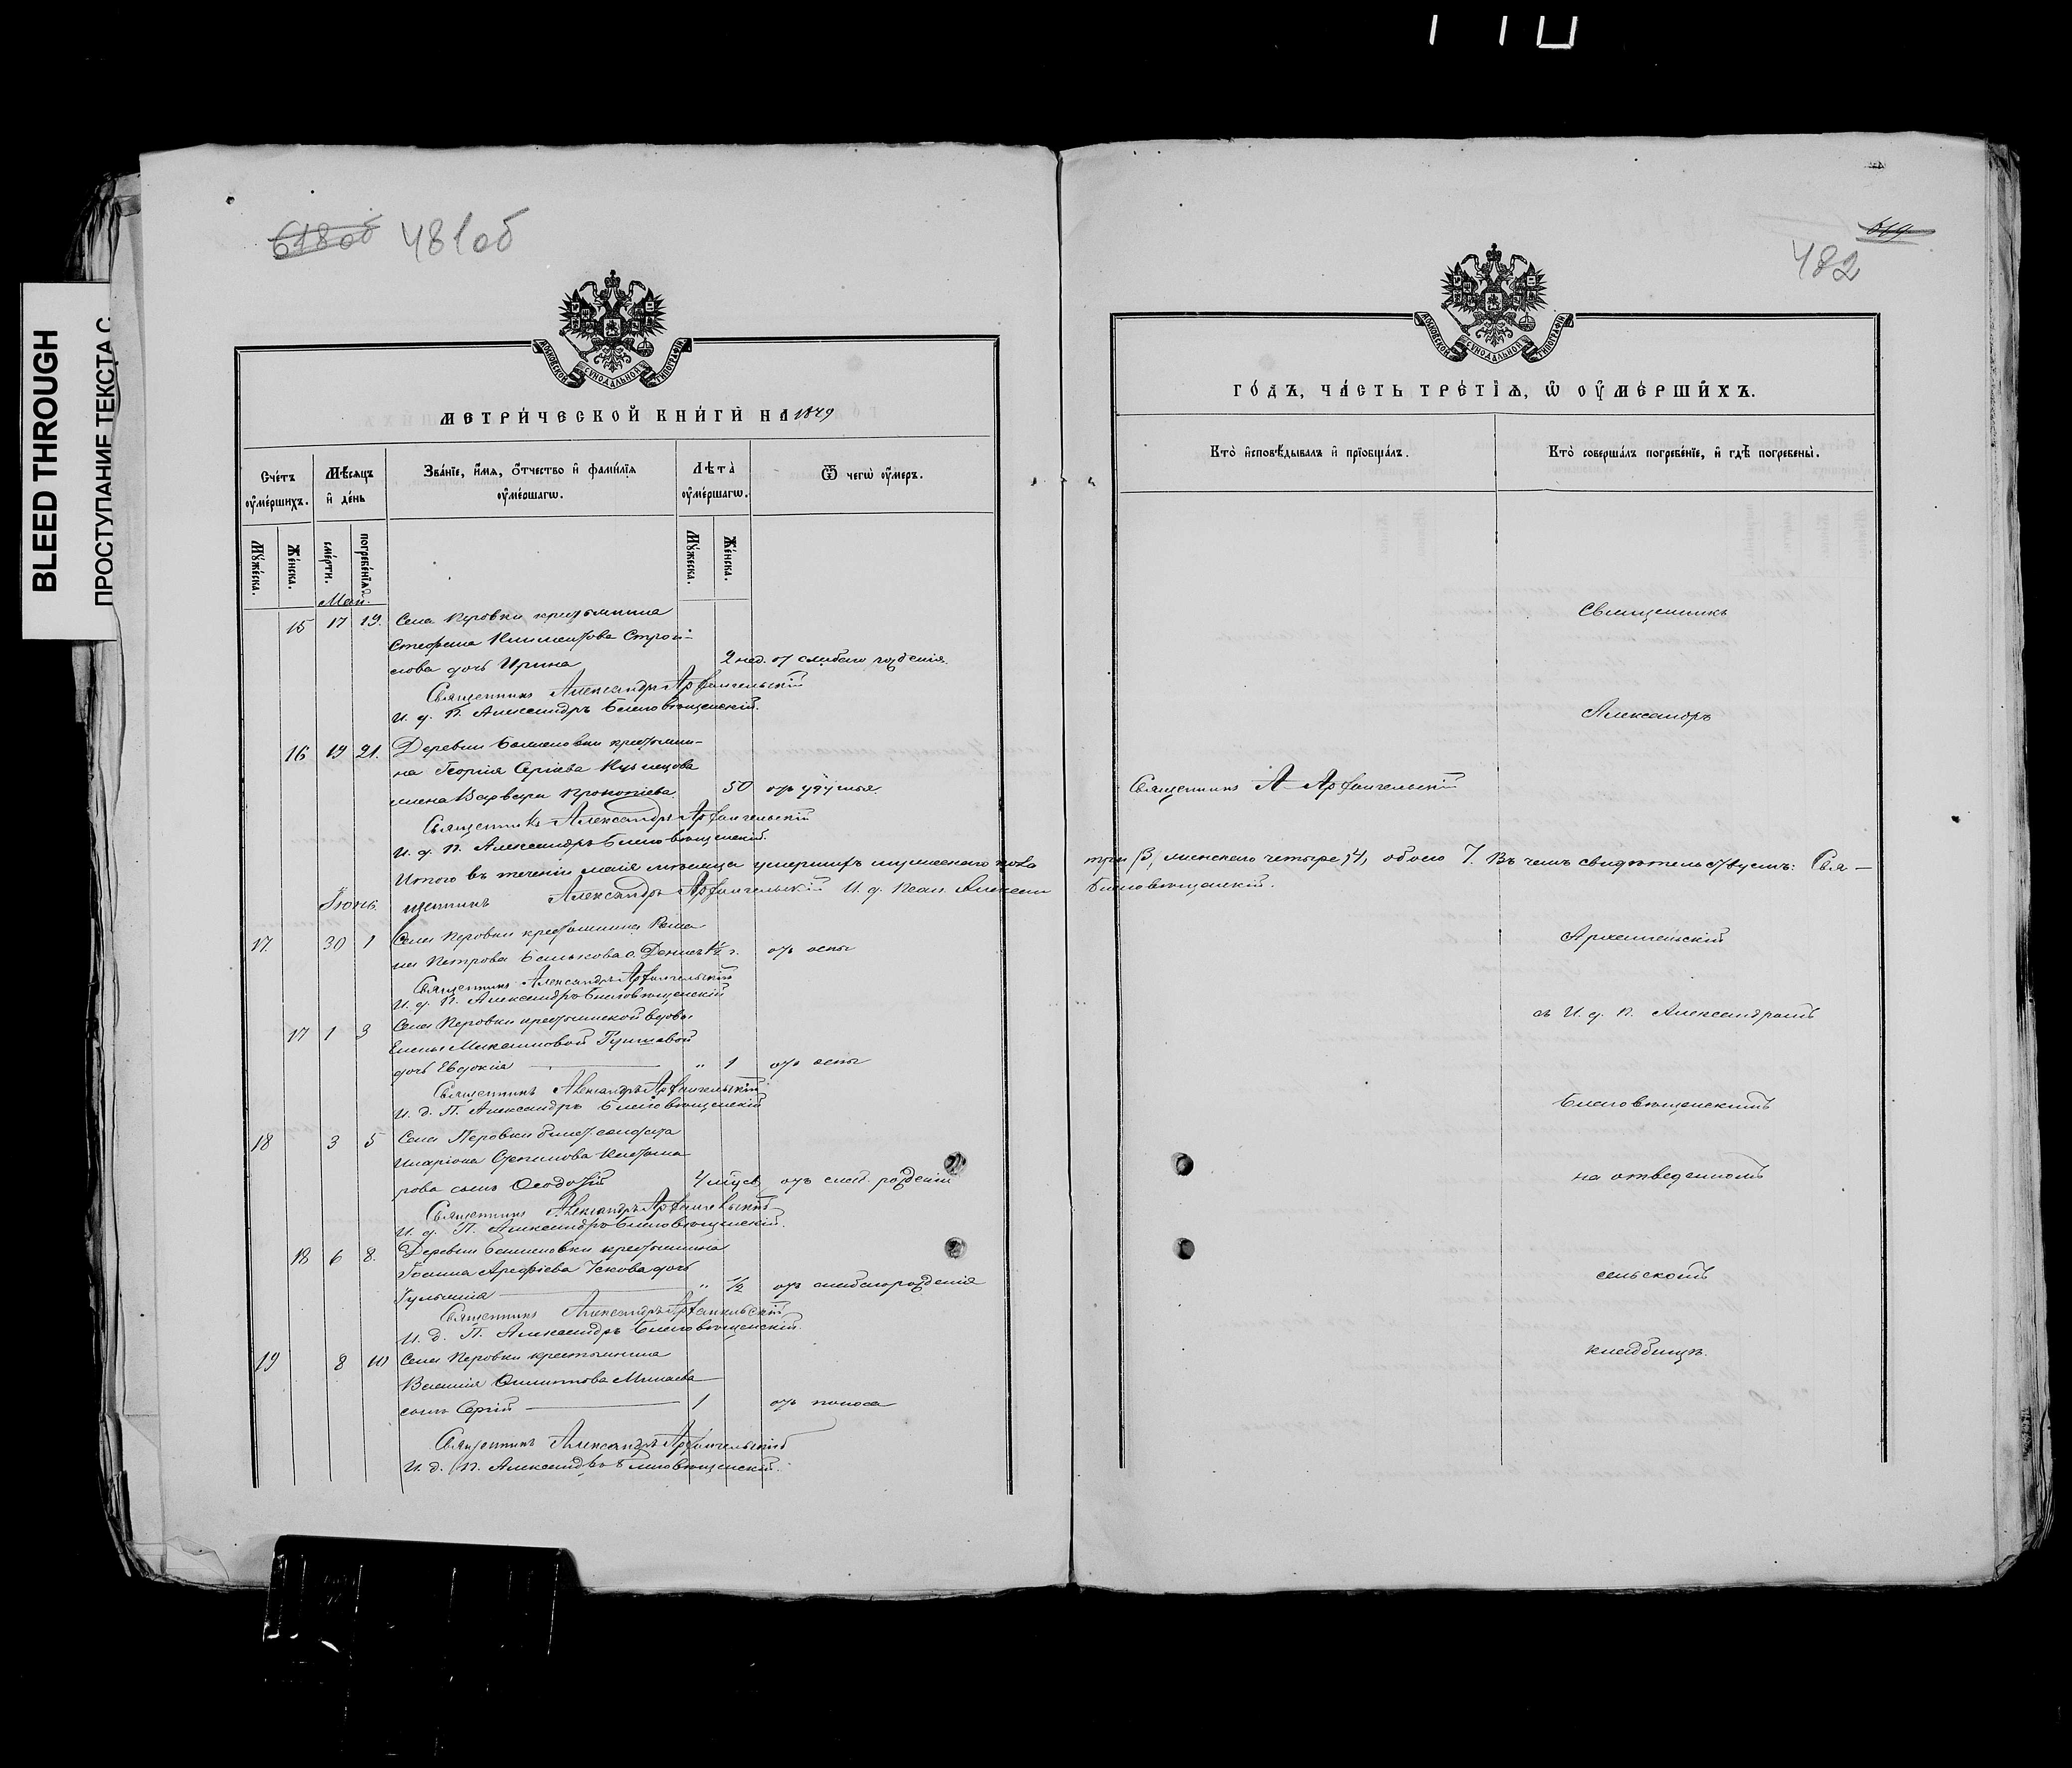 BLEED THROUGH
ПРОСТУПАНИЕ ТЕКСТА С
618об 481об
МОСКОВСКОЙ СѴНОДАЛЬНОЙ ТИПОГРАФІИ
МЕТРИЧЕСКОЙ КНИГИ НА 1879
Счетъ оумершихъ.
Мѣсяцъ и день
Званіе, имя, отчество и фамилія оумершагѡ.
Лѣта оумершагѡ.
Ѿ чегѡ оумеръ.
Мужеска.
Женска.
смерти.
погребенія.
Мужеска.
Женска.
Май.
15 17 19. Села Перовки крестьянина
Стефана Климентова Строи-
лова дочь Ирина 2 нед. от слабаго рожденія
Священникъ Александръ Архангельскій
И. д. П. Александръ Благовѣщенскій.
16 19 21. Деревни крестьяни-
на Георгія Сергіева Кузнецова
жена Варвара Прокопіева 50 отъ удушья
Священникъ Александръ Архангельскій
И. д. П. Александръ Благовѣщенскій.
Итого въ теченіи маія мѣсяца умершихъ мужескаго пола
Іюнь. щенникъ Александръ Архангельскій И. д. Псал. Александръ
17. 30 1 Села Перовки крестьянина
на Петрова с. Денисъ 1½ г. отъ оспы
Священникъ Александръ Архангельскій
И. д. П. Александръ Благовѣщенскій
17 1 3 Села Перовки крестьянской вдовы
Елены дочь Евдокія " 1 отъ оспы
Священникъ Александръ Архангельскій
И. д. П. Александръ Благовѣщенскій
18 3 5 Села Перовки билет. солдата
Иларіона
рова сынъ Ѳеодотій 4 мѣсяц отъ слаб. рожденія
Священникъ Александръ Архангельскій
И. д. П. Александръ Благовѣщенскій.
18 6 8. Деревни крестьянина
Іоанна Арефіева дочь
Іуліанія " ½ отъ слабаго рожденія
Священникъ Александръ Архангельскій
И. д. П. Александръ Благовѣщенскій.
19 8 10 Села Перовки крестьянина
Василія Филиппова Минаева
сынъ Сергій 1 отъ поноса
Священникъ Александръ Архангельскій
И. д. П. Александръ Благовѣщенскій.
619
482
МОСКОВСКОЙ СѴНОДАЛЬНОЙ ТИПОГРАФІИ
ГОДЪ, ЧАСТЬ ТРЕТІЯ, Ѡ ОУМЕРШИХЪ.
Кто исповѣдывалъ и пріобщалъ.
Кто совершалъ погребеніе, и гдѣ погребены.
Священникъ
Александръ
Священникъ А Архангельскій
три /3/, женскаго четыре /4/, обоего 7. Въ чемъ свидѣтельствуемъ: Свя-
Благовѣщенскій.
Архангельскій
съ И. д. П. Александромъ
Благовѣщенскимъ
на отведенномъ
сельскомъ
кладбищѣ.